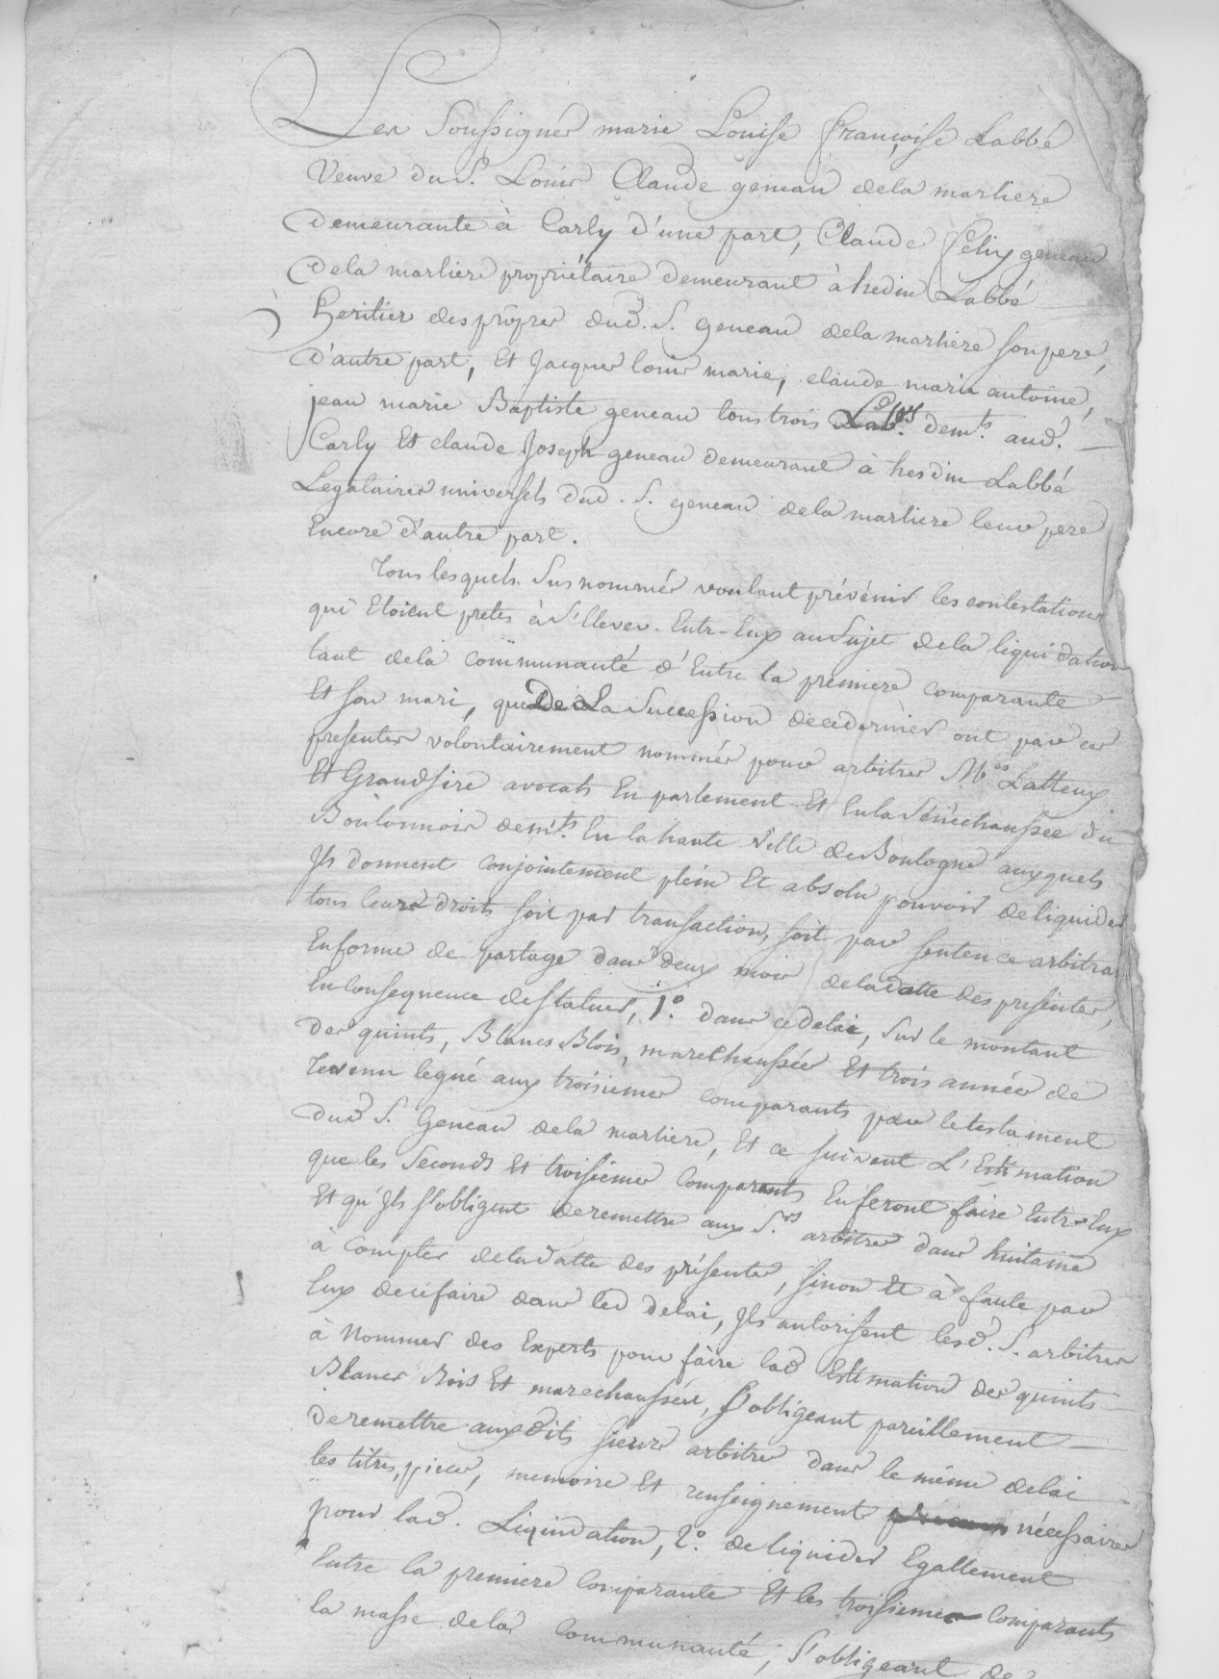 Les Soussignés marie Louise françoise Labbé
Veuve du S. Louis Claude geneau dela marliere
Demeurante à Carly d'une part, Claude felix geneau
Dela marliere propriétaire demeurant à hesdin Labbé
heritier des propres dud. S. geneau dela marliere son pere,
D'autre part, Et Jacques louis marie, claude marie antoine,
jean marie Baptiste geneau tous trois demts. aud.
Carly Et claude Joseph geneau demeurant à hesdin Labbé
Legataires universels dud. S. geneau dela marliere leur pere
Encore d'autre part.
Tous lesquels Susnommés voulant prévénir les contestations
qui Etoient pretes à S'Elever Entr-Eux au Sujet dela liquidation
tant dela communauté d'Entre la premiere comparante
Et son mari, que De La Succession de cedernier ont par ces
presentes volontairement nommés pour arbitres Mes Latteux
Et Grandsire avocats En parlement Et Enla Sénéchaussée du
Boulonnois demts. En la haute Ville de Boulogne auxquels
Ils donnent conjointement plein Et absolu pouvoir deliquider
tous leurs droits soit par transaction, soit par sentence arbitra
En forme de partage dans deux mois dela datte des presentes,
En Consequence destatuer, 1°. dans ce delai, Sur le montant
Des quints, Blancs Bois, marechaussées Et trois années de
revenu legué aux troisiemes comparants par le testament
Dud S. Geneau dela marliere, Et ce suivant L'Estimation
que les Seconds Et troisiemes Comparants En feront faire Entr-Eux
Et qu'Ils s'obligent deremettre aux Srs. arbitres dans huitaine
à Compter dela datte des présentes, sinon Et à faute par
Eux dece faire dans led delai, Ils autorisent lesd. S. arbitres
à Nommer des Experts pour faire lad Estimation des quints
Blancs Bois Et marechaussées, S'obligeant pareillement
Deremettre auxdits sieurs arbitres dans le même delai
les titres, pieces, memoire Et renseignement nécessaires
pour lad. Liquidation, 2°. de liquider Egallement
Entre la premiere Comparante Et les troisiemes Comparants
la masse dela Communauté, S'obligeant de